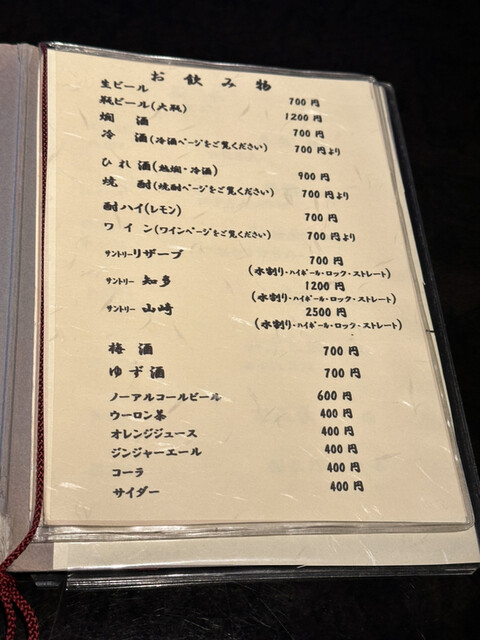 お飲み物
生ビール 700円
瓶ビール(大瓶) 1200円
燗酒 700円
冷酒(冷酒ページをご覧ください) 700円より
ひれ酒(熱燗・冷酒) 900円
焼酎(焼酎ページをご覧ください) 700円より
酎ハイ(レモン) 700円
ワイン(ワインページをご覧ください) 700円より
サントリーリザーブ 700円
(水割り・ハイボール・ロック・ストレート)
サントリー 知多 1200円
(水割り・ハイボール・ロック・ストレート)
サントリー 山崎 2500円
(水割り・ハイボール・ロック・ストレート)
梅酒 700円
ゆず酒 700円
ノーアルコールビール 600円
ウーロン茶 400円
オレンジジュース 400円
ジンジャーエール 400円
コーラ 400円
サイダー 400円